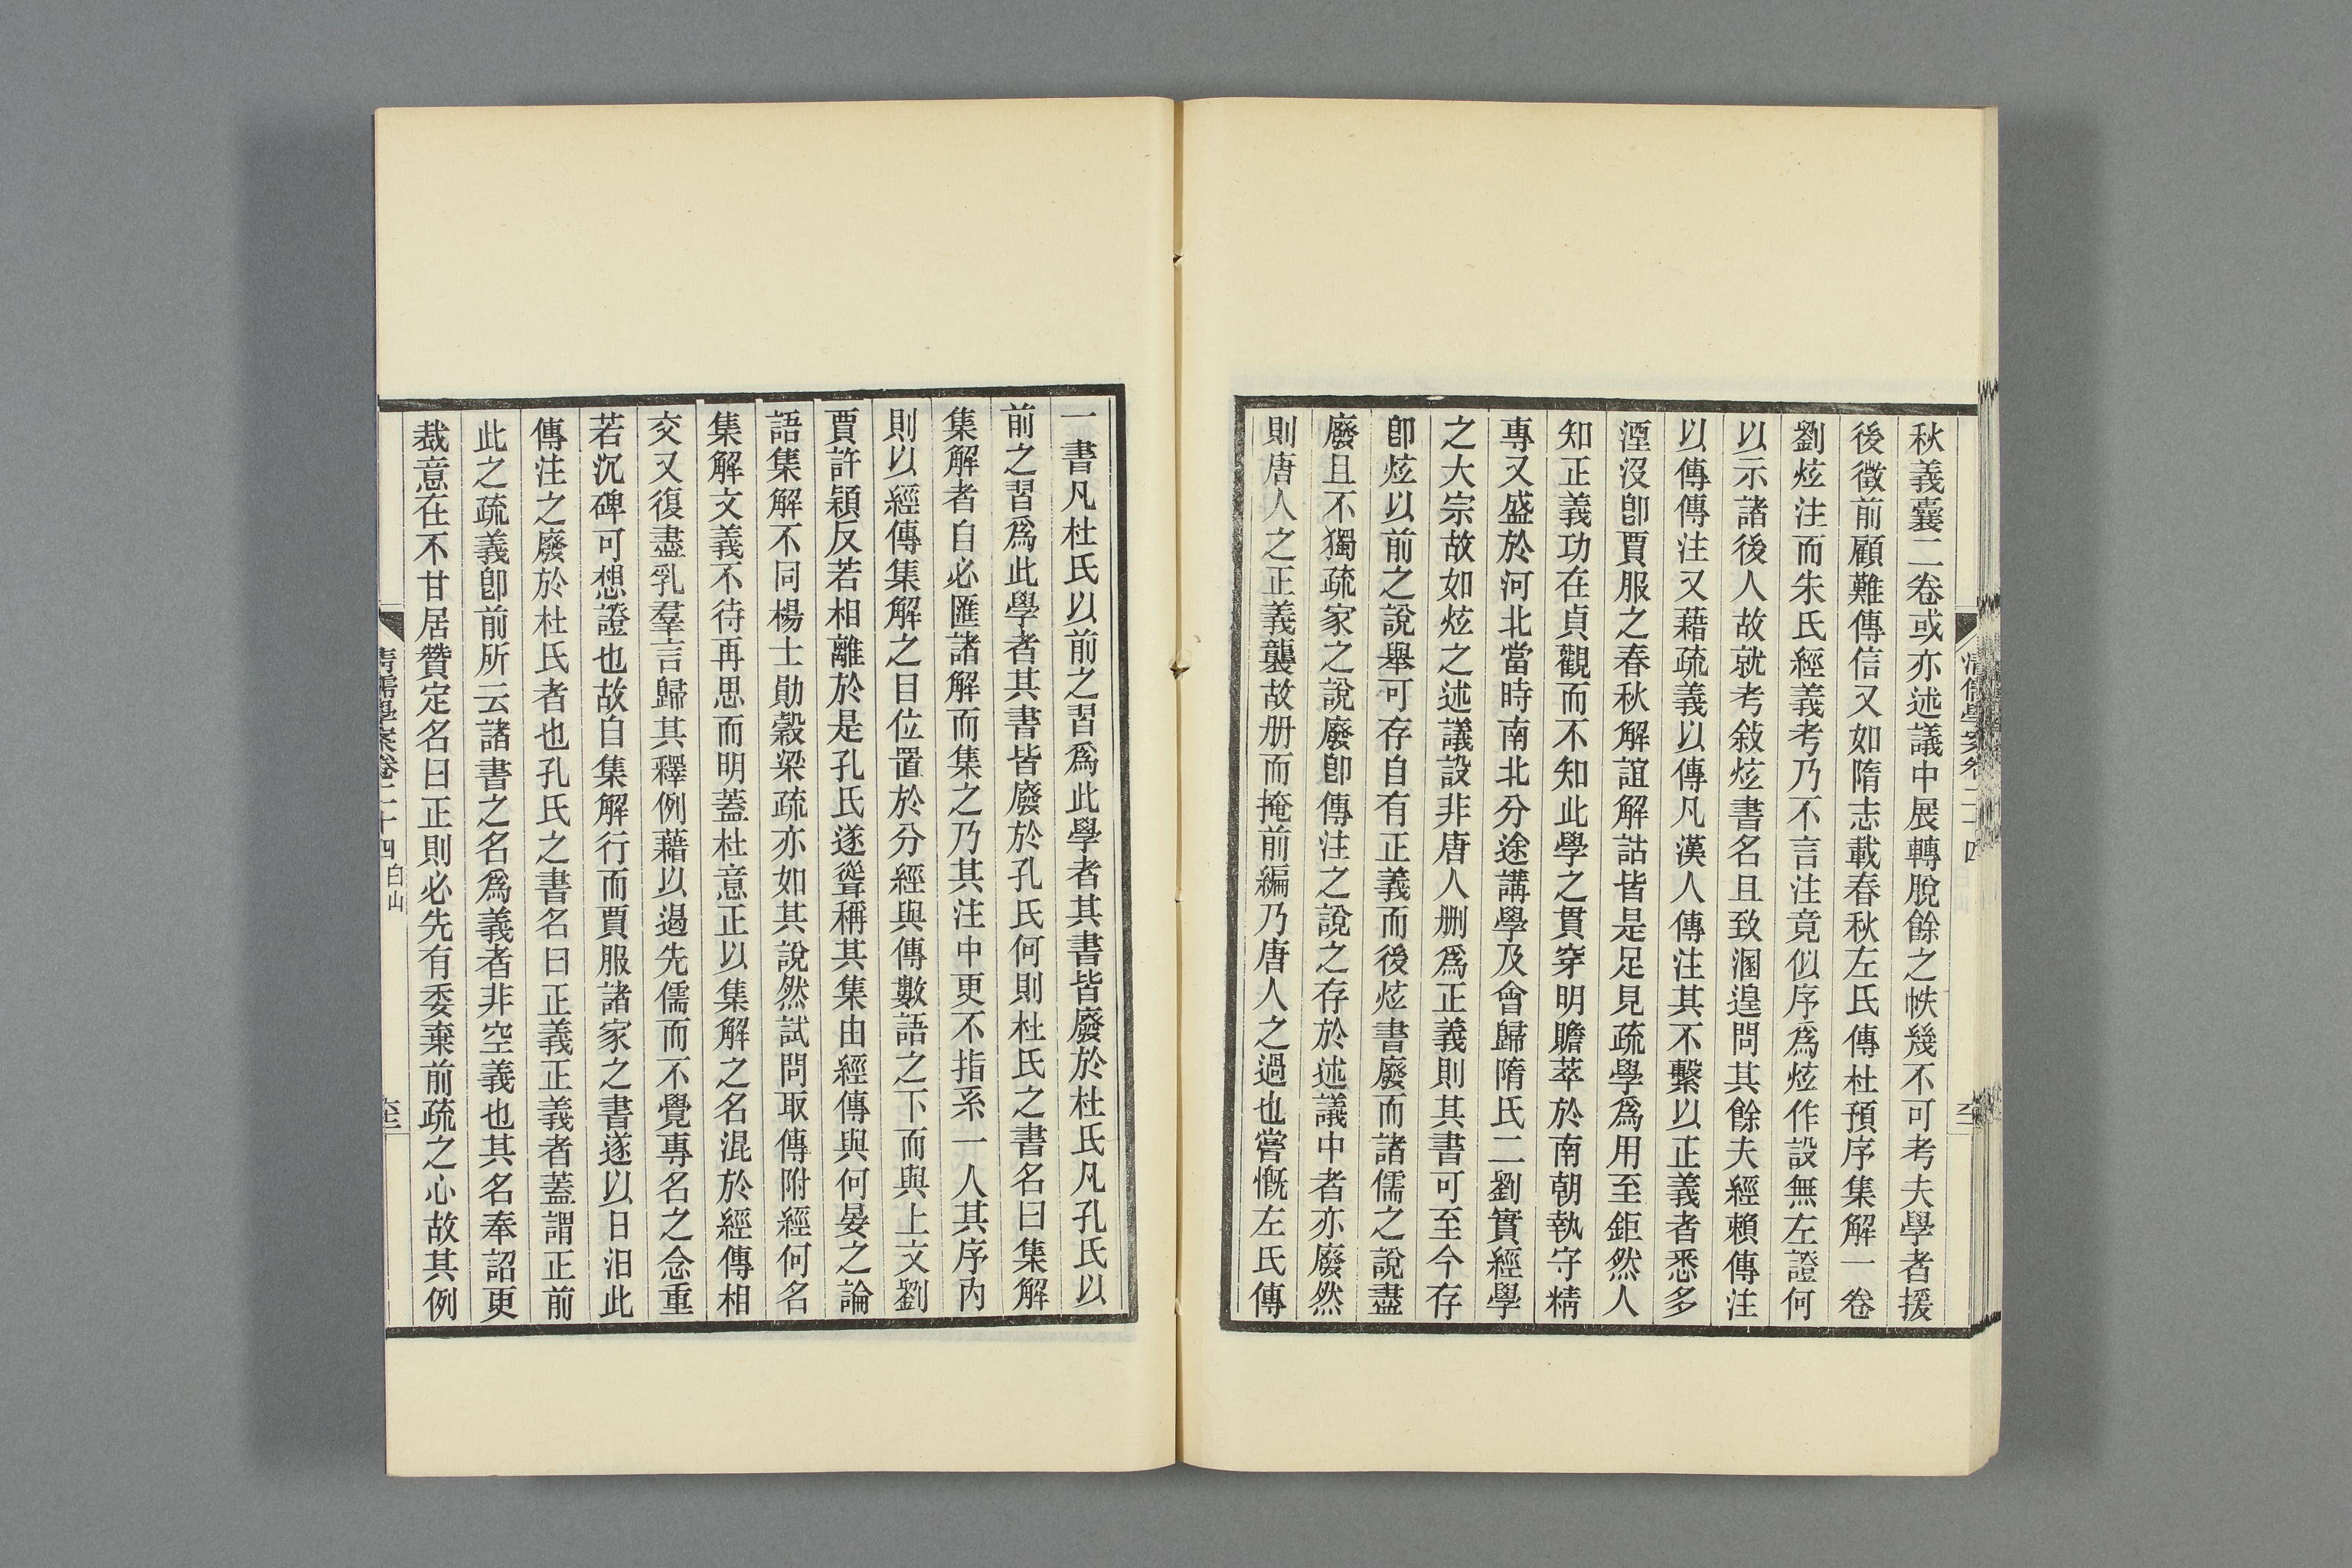 秋義囊二卷或亦述議中展轉脫餘之帙幾不可考夫學者援
後徵前顧難傳信又如隋志載春秋左氏傳杜預序集解一卷
劉炫注而朱氏經義考乃不言注竟似序爲炫作設無左證何
以示諸後人故就考敍炫書名且致溷遑問其餘夫經賴傳注
以傳傳注又藉疏義以傳凡漢人傳注其不繫以正義者悉多
湮沒卽賈服之春秋解誼解詁皆是足見疏學爲用至鉅然人
知正義功在貞觀而不知此學之貫穿明贍萃於南朝執守精
專又盛於河北當時南北分途講學及會歸隋氏二劉實經學
之大宗故如炫之述議設非唐人刪爲正義則其書可至今存
卽炫以前之說舉可存自有正義而後炫書廢而諸儒之說盡
廢且不獨疏家之說廢卽傳注之說之存於述議中者亦廢然
則唐人之正義襲故册而掩前編乃唐人之過也嘗慨左氏傳
一書凡杜氏以前之習爲此學者其書皆廢於杜氏凡孔氏以
前之習爲此學者其書皆廢於孔氏何則杜氏之書名曰集解
集解者自必匯諸解而集之乃其注中更不指系一人其序內
則以經傳集解之目位置於分經與傳數語之下而與上文劉
賈許穎反若相離於是孔氏遂聳稱其集由經傳與何晏之論
語集解不同楊士勛穀梁疏亦如其說然試問取傳附經何名
集解文義不待再思而明蓋杜意正以集解之名混於經傳相
交又復盡乳羣言歸其釋例藉以過先儒而不覺專名之念重
若沉碑可想證也故自集解行而賈服諸家之書遂以日汨此
傳注之廢於杜氏者也孔氏之書名曰正義正義者蓋謂正前
此之疏義卽前所云諸書之名爲義者非空義也其名奉詔更
裁意在不甘居贊定名曰正則必先有委棄前疏之心故其例
清儒學案卷二十四 白山